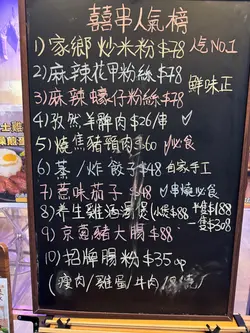 囍串人氣榜
1) 家鄉炒米粉 $78 人气 NO.1
2) 麻辣花甲粉絲 $78
3) 麻辣蠔仔粉絲 $78
鮮味正
4) 孜然羊脾肉 $26/串
5) 燒焦豬頸肉 $60 必食
6) 蒸/炸餃子 $48 自家手工
7) 惹味茄子 $48 串燒必食
8) 养生雞酒湯煲(小煲$88
一隻$308
9) 京蔥豬大腸 $88
10) 招牌腸粉 $35
(瘦肉/雞蛋/牛肉